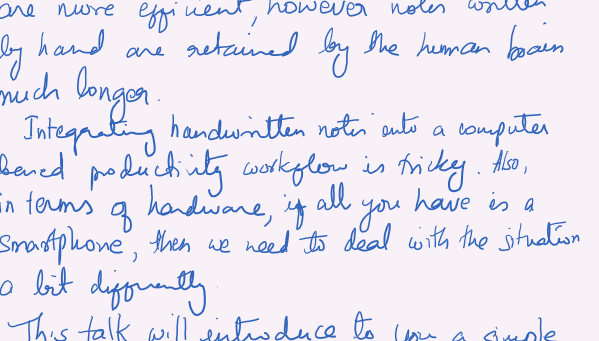 are more efficient, however notes written
by hand are retained by the human brain
much longer.
Integrating handwritten notes into a computer
based productivity workflow is tricky. Also,
in terms of hardware, if all you have is a
smartphone, then we need to deal with the situation
a bit differently
This talk will introduce to you a simple